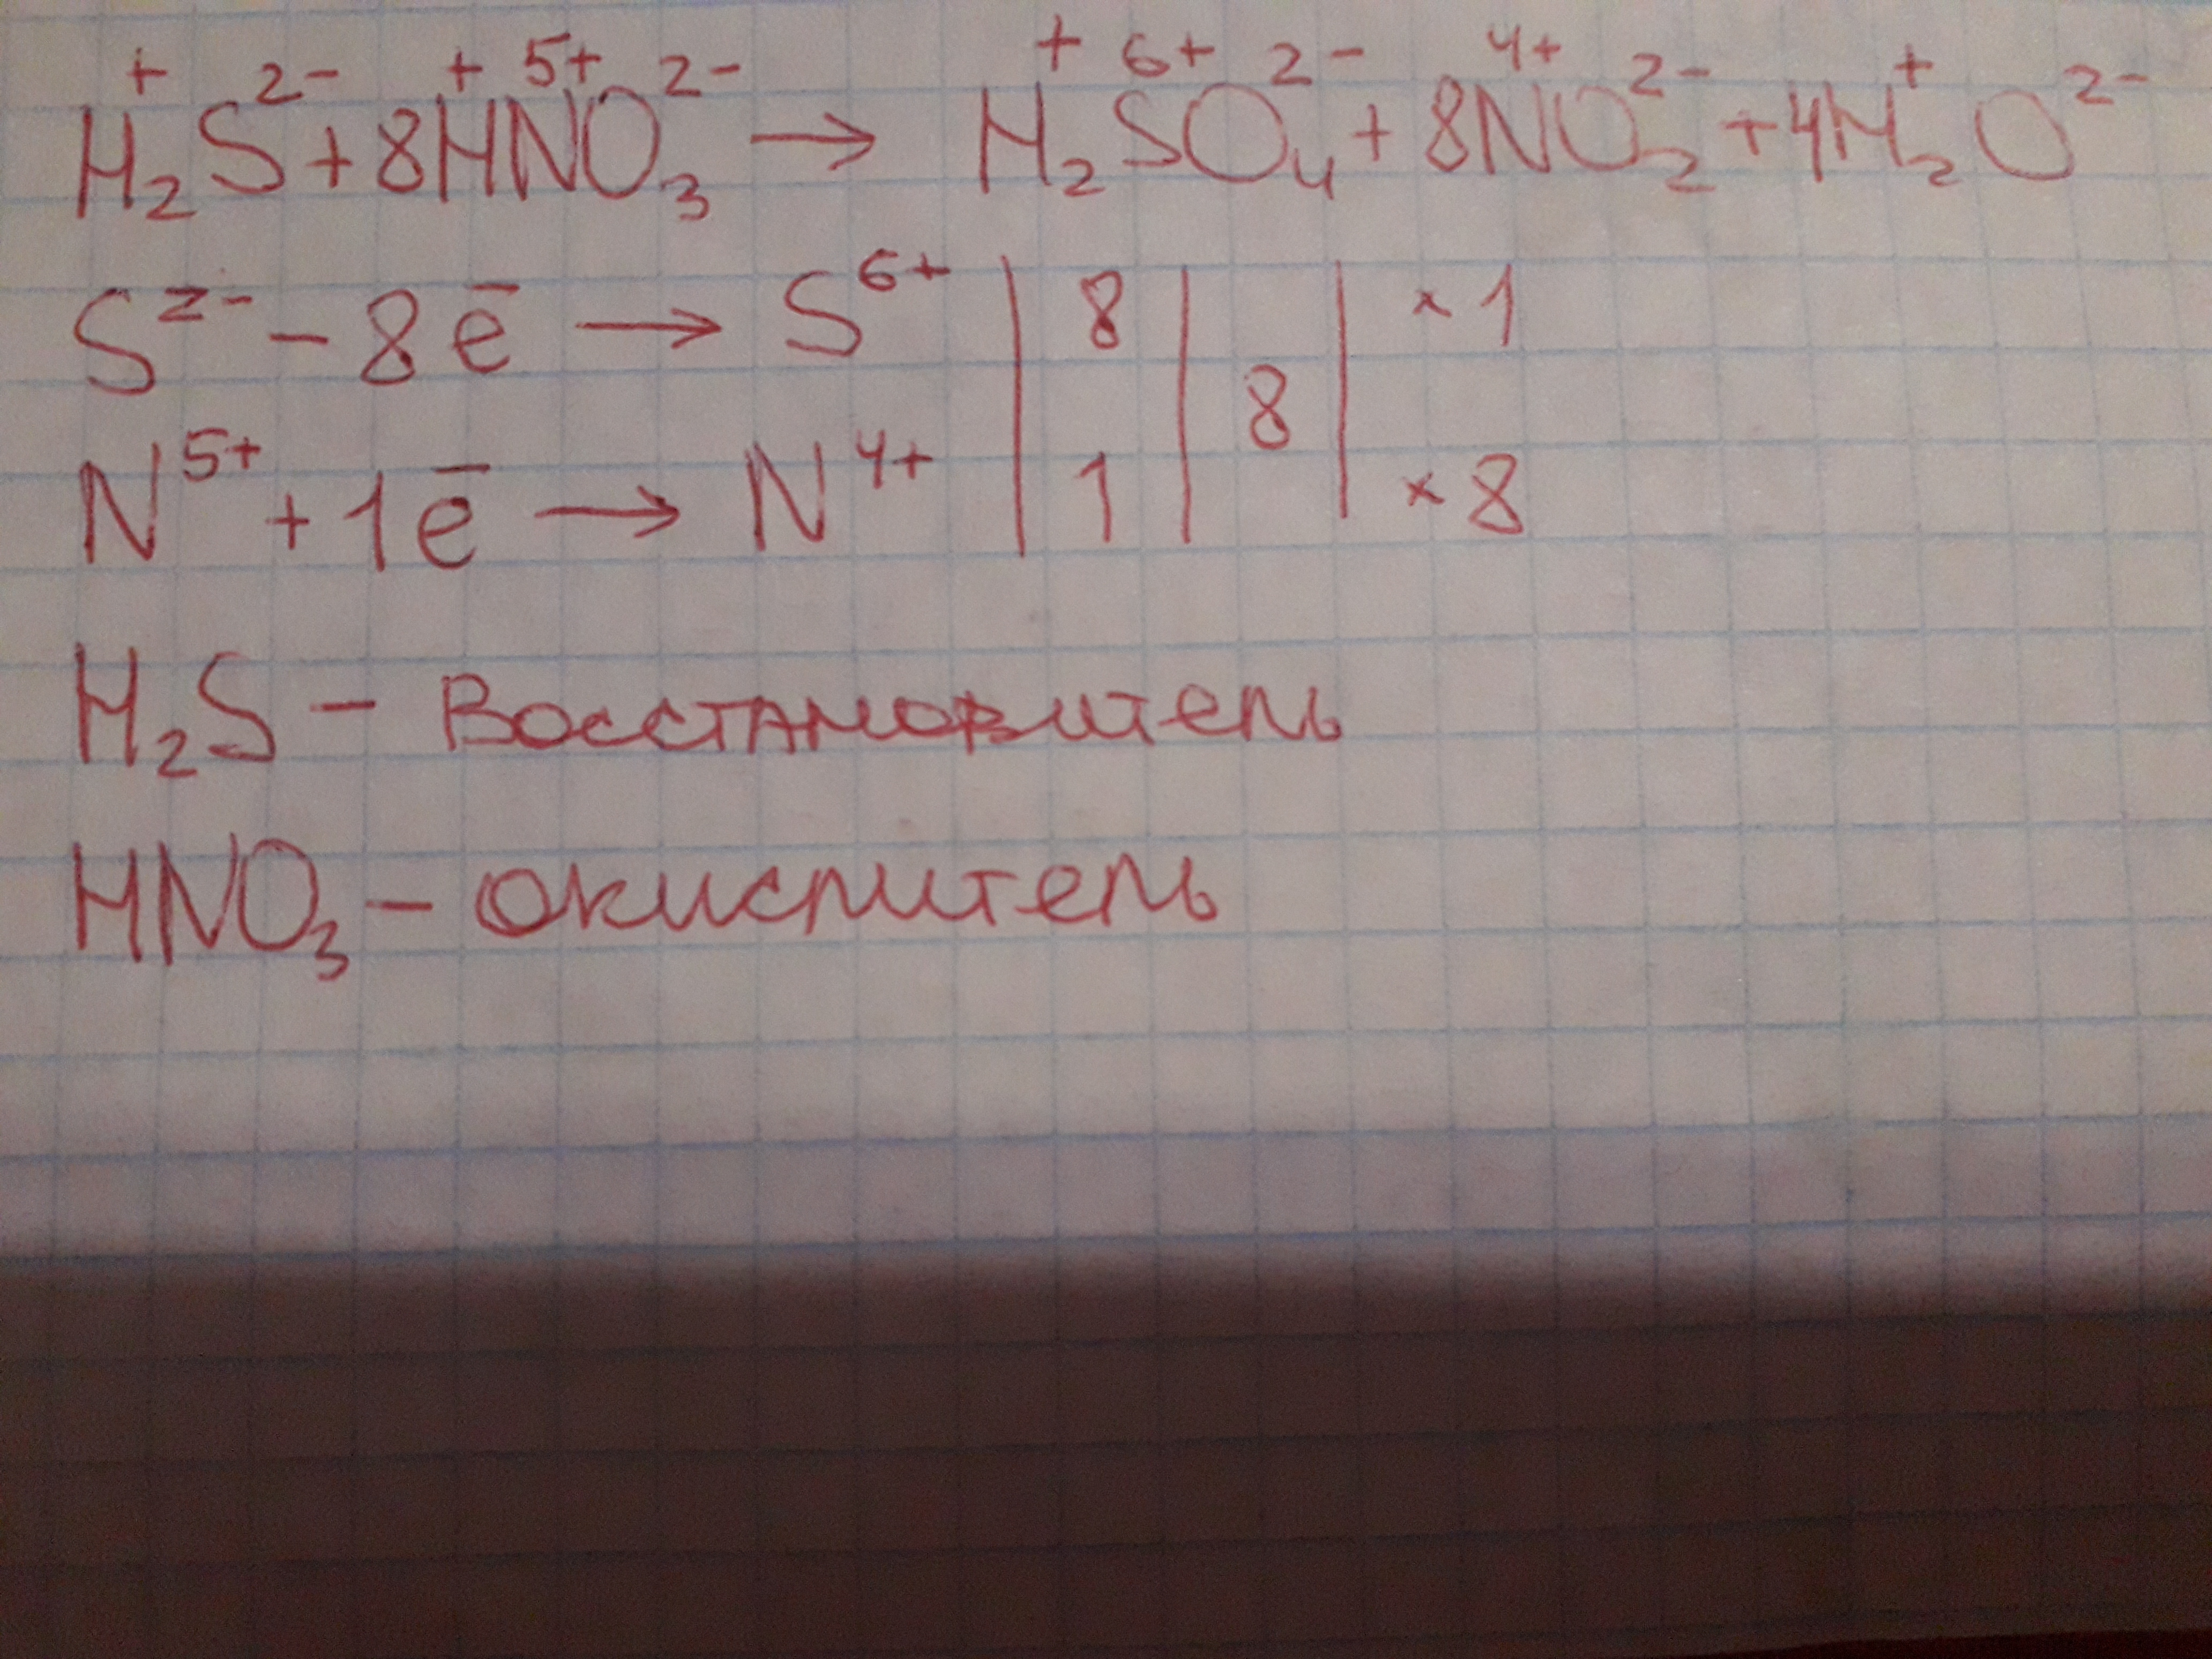 H₂⁺S²⁻ + 8H⁺N⁵⁺O₃²⁻ → H₂⁺S⁶⁺O₄²⁻ + 8N⁴⁺O₂²⁻ + 4H₂⁺O²⁻
S²⁻ - 8ē → S⁶⁺ | 8 | 8 | × 1
N⁵⁺ + 1ē → N⁴⁺ | 1 | | × 8
H₂S - Восстановитель
HNO₃ - окислитель